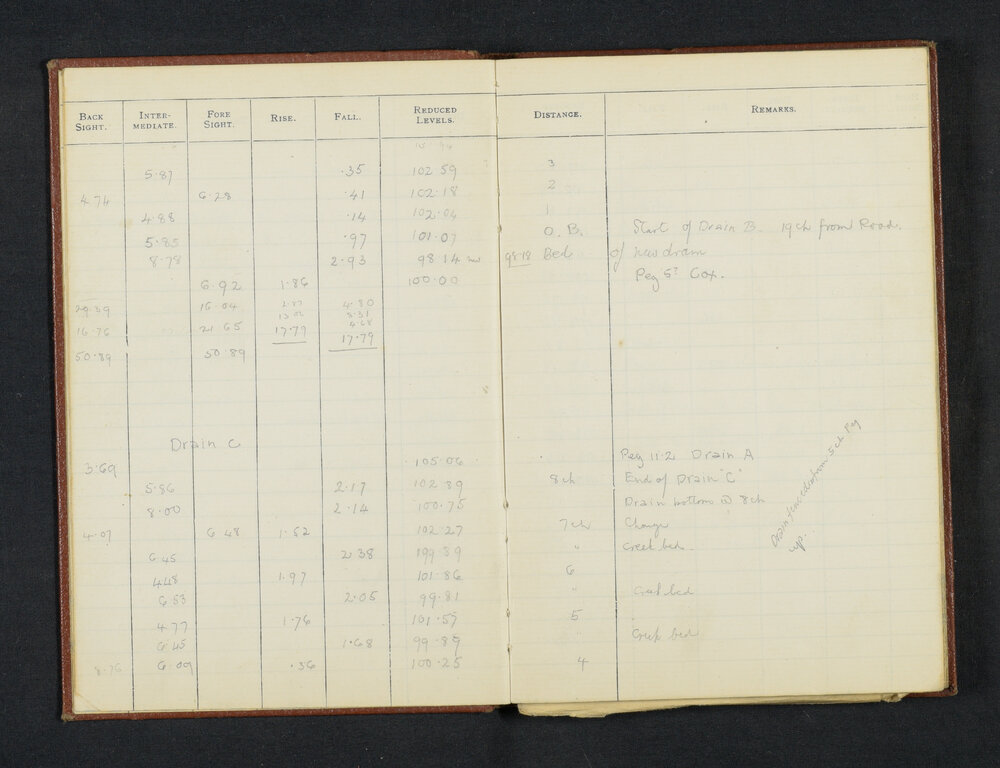 BACK SIGHT. INTER-MEDIATE. FORE SIGHT. RISE. FALL. REDUCED LEVELS. DISTANCE. REMARKS.
5.87 .35 102.59 3
4.74 6.28 .41 102.18 2
4.88 .14 102.04 1
5.85 .97 101.07 0. B. Start of Drain B. 19ch from Road.
8.78 2.93 98.14 98.18 Bed of new drain
6.92 1.86 100.00 Peg 5T Cox.
29.39 16.04 4.80
8.31
16.76 21.65 17.79 4.68
17.79
50.89 50.89
Drain C
3.69 105.06 Peg 11.2 Drain A
5.86 2.17 102.89 8ch End of Drain "C"
8.00 2.14 100.75 Drain bottom @ 8ch
4.07 6.48 1.52 102.27 7ch Change
6.45 2.38 199.89 " Creek bed
4.48 1.97 101.86 6
6.53 2.05 99.81 " Creek bed
4.77 1.76 101.57 5
6.45 1.68 99.89 " Creek bed
8.76 6.09 .36 100.25 4
Drain fenced from 5 ch Peg
up.